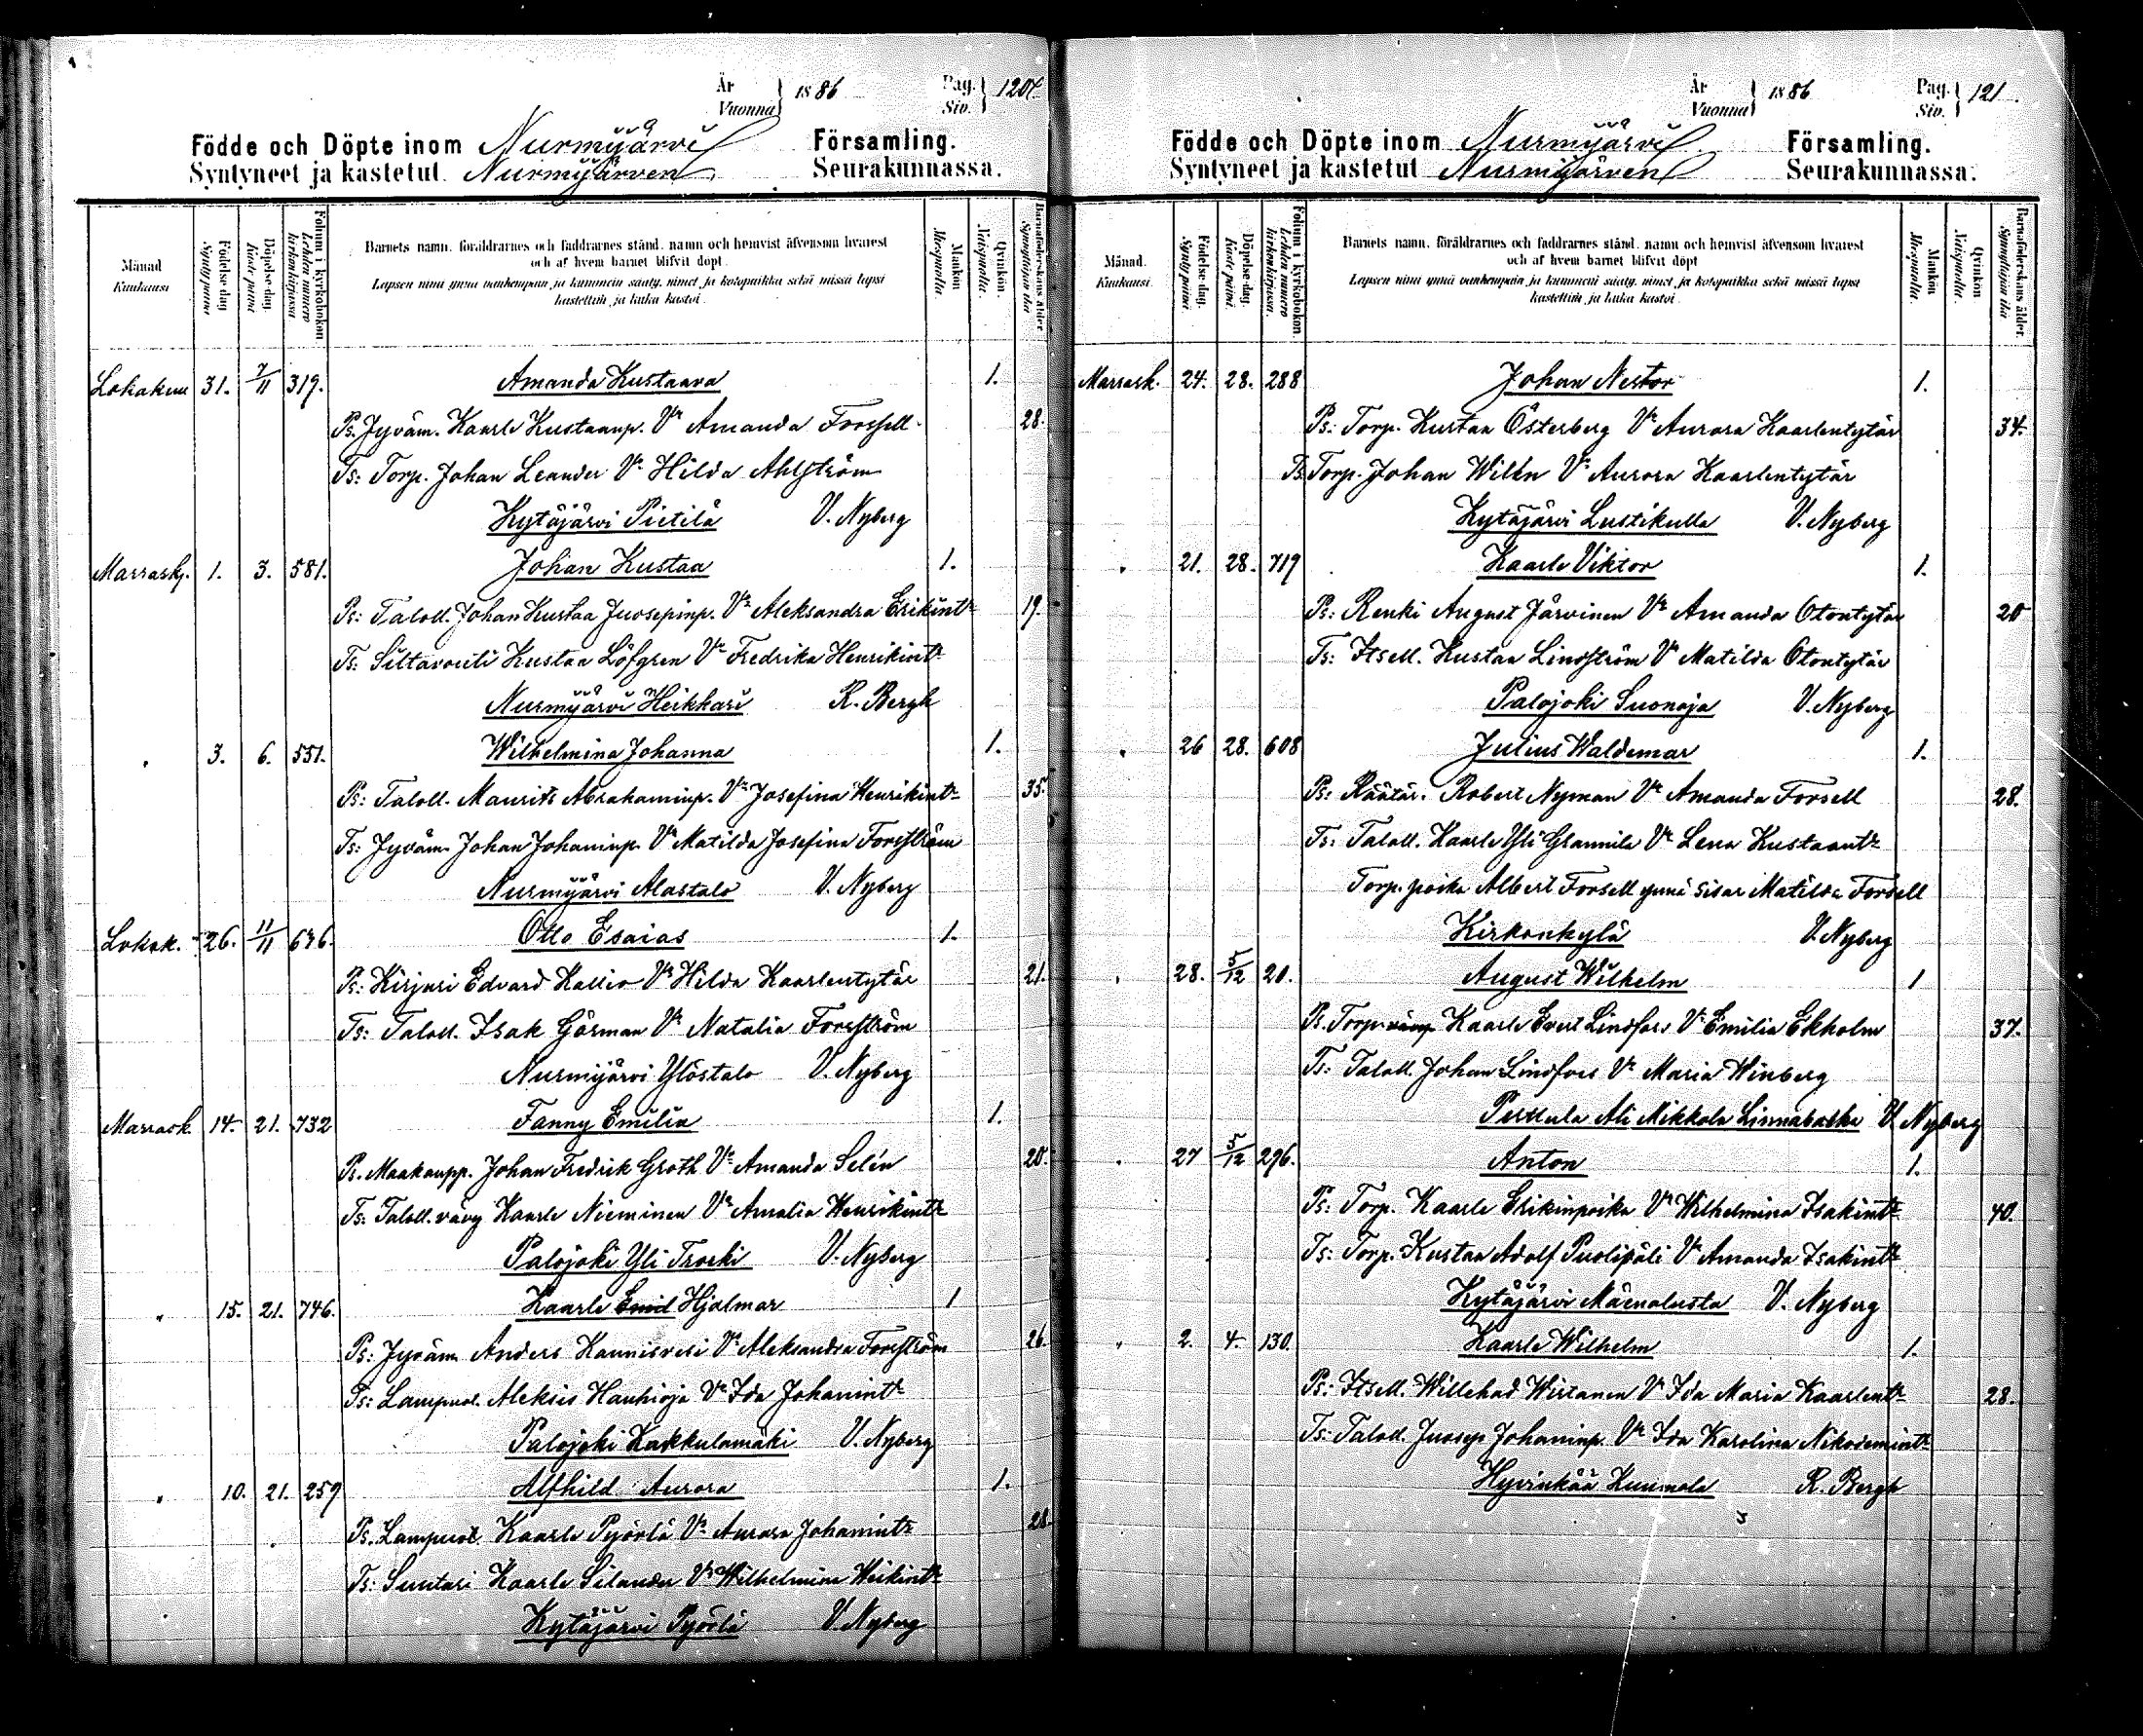 År
Vuonna } 1886 Pag.
Siv. } 120
Födde och Döpte inom Nurmijärvi Församling.
Syntyneet ja kastetut Nurmijärven Seurakunnassa.
Månad
Kuukausi
Födelse-dag
Syntypäivä
Döpelse-dag.
Kastepäivä
Folium i kyrkoboken
Lehden numero kirkonkirjassa
Barnets namn, föräldrarnes och faddrarnes stånd, namn och hemvist äfvensom hvarest
och af hvem barnet blifvit döpt.
Lapsen nimi ynnä vanhempain ja kummein sääty, nimet ja kotopaikka sekä missä lapsi
kastettiin ja kuka kastoi.
Mankön
Miespuolia
Qvinkön.
Naispuolia.
Barnaföderskans ålder
Synnyttäjän ikä
Lokakuu 31. 7/11 319. Amanda Kustaava 1.
Ps. Jyväm. Kaarle Kustaanp. Vo Amanda Forssell 28.
Ts: Torp. Johan Leander Vo Hilda Ahlström
Kytäjärvi Pietilä V. Nyberg
Marrask. 1. 3. 581. Johan Kustaa 1.
Ps: Taloll. Johan Kustaa Juosepinp. Vo Aleksandra Erikint. 19.
Ts: Siltavouti Kustaa Löfgren Vo Fredrika Henrikint.
Nurmijärvi Heikkari R. Bergh
" 3. 6. 551. Wilhelmina Johanna 1.
Ps: Taloll. Maurits Abrahaminp. Vo Josefina Henrikint. 35.
Ts: Jyväm. Johan Johaninp. Vo Matilda Josefina Forsström
Nurmijärvi Alastalo V. Nyberg
Lokak. 26. 11/11 636. Otto Esaias 1.
Ps: Kirjuri Edvard Kallio Vo Hilda Kaarlentytär 21.
Ts: Taloll. Isak Görman Vo Natalia Forsström
Nurmijärvi Ylöstalo V. Nyberg
Marrask. 14. 21. 732 Fanny Emilia 1.
Ps. Maakaupp. Johan Fredrik Groth Vo Amanda Selén 20.
Ts: Taloll. vävy Kaarle Nieminen Vo Amalia Henrikint.
Palojoki Yli Troski V. Nyberg
" 15. 21. 746. Kaarle Emil Hjalmar 1
Ps: Jyväm. Anders Kaunisvesi Vo Aleksandra Forsström 26.
Ts: Lampuol. Aleksis Hanhioja Vo Ida Johanint.
Palojoki Kukkulamäki V. Nyberg
" 10. 21. 259 Alfhild Aurora 1.
Ps. Lampuol. Kaarle Pyörlä Vo Aurora Johanint. 28.
Ts: Suutari Kaarle Silander Vo Wilhelmina Heikint.
Kytäjärvi Pyörlä V. Nyberg
År
Vuonna } 1886 Pag.
Siv. } 121.
Födde och Döpte inom Nurmijärvi Församling.
Syntyneet ja kastetut Nurmijärven Seurakunnassa.
Månad.
Kuukausi.
Födelse-dag.
Syntypäivä
Döpelse-dag.
Kastepäivä.
Folium i kyrkoboken.
Lehden numero kirkonkirjassa.
Barnets namn, föräldrarnes och faddrarnes stånd, namn och hemvist äfvensom hvarest
och af hvem barnet blifvit döpt
Lapsen nimi ynnä vanhempain ja kummein sääty, nimet ja kotopaikka sekä missä lapsi
kastettiin ja kuka kastoi.
Mankön
Miespuolia.
Qvinkön
Naispuolia.
Barnaföderskans ålder.
Synnyttäjän ikä
Marrask. 24. 28. 288 Johan Nestor 1.
Ps: Torp. Kustaa Österberg Vo Aurora Kaarlentytär 34.
Ts Torp. Johan Wilén Vo Aurora Kaarlentytär
Kytäjärvi Lustikulla V. Nyberg
" 21. 28. 719 Kaarle Viktor 1.
Ps: Renki August Järvinen Vo Amanda Otontytär 20
Ts: Itsell. Kustaa Lindström Vo Matilda Otontytär
Palojoki Suonoja V. Nyberg
" 26 28. 608 Julius Waldemar 1.
Ps: Räätär. Robert Nyman Vo Amanda Forsell 28.
Ts: Taloll. Kaarle Yli Grannila Vo Lena Kustaant.
Torp. poika Albert Forsell ynnä sisar Matilda Forsell
Kirkonkylä V. Nyberg
" 28. 5/12 20. August Wilhelm 1
Ps. Torp. vävy Kaarle Evert Lindfors Vo Emilia Ekholm 37.
Ts: Taloll. Johan Lindfors Vo Maria Winberg
Perttula Ali Mikkola Linnabacka V. Nyberg
" 27 5/12 296. Anton 1.
Ps: Torp. Kaarle Erikinpoika Vo Wilhelmina Isakint. 40.
Ts: Torp. Kustaa Adolf Puolipäli Vo Amanda Isakint.
Kytäjärvi Mäenalusta V. Nyberg
" 2. 4. 130. Kaarle Wilhelm 1.
Ps: Itsell. Willehad Wirtanen Vo Ida Maria Kaarlent. 28.
Ts: Taloll. Juosep Johaninp. Vo Ida Karolina Nikodemint.
Hyvinkää Kuumola R. Bergh